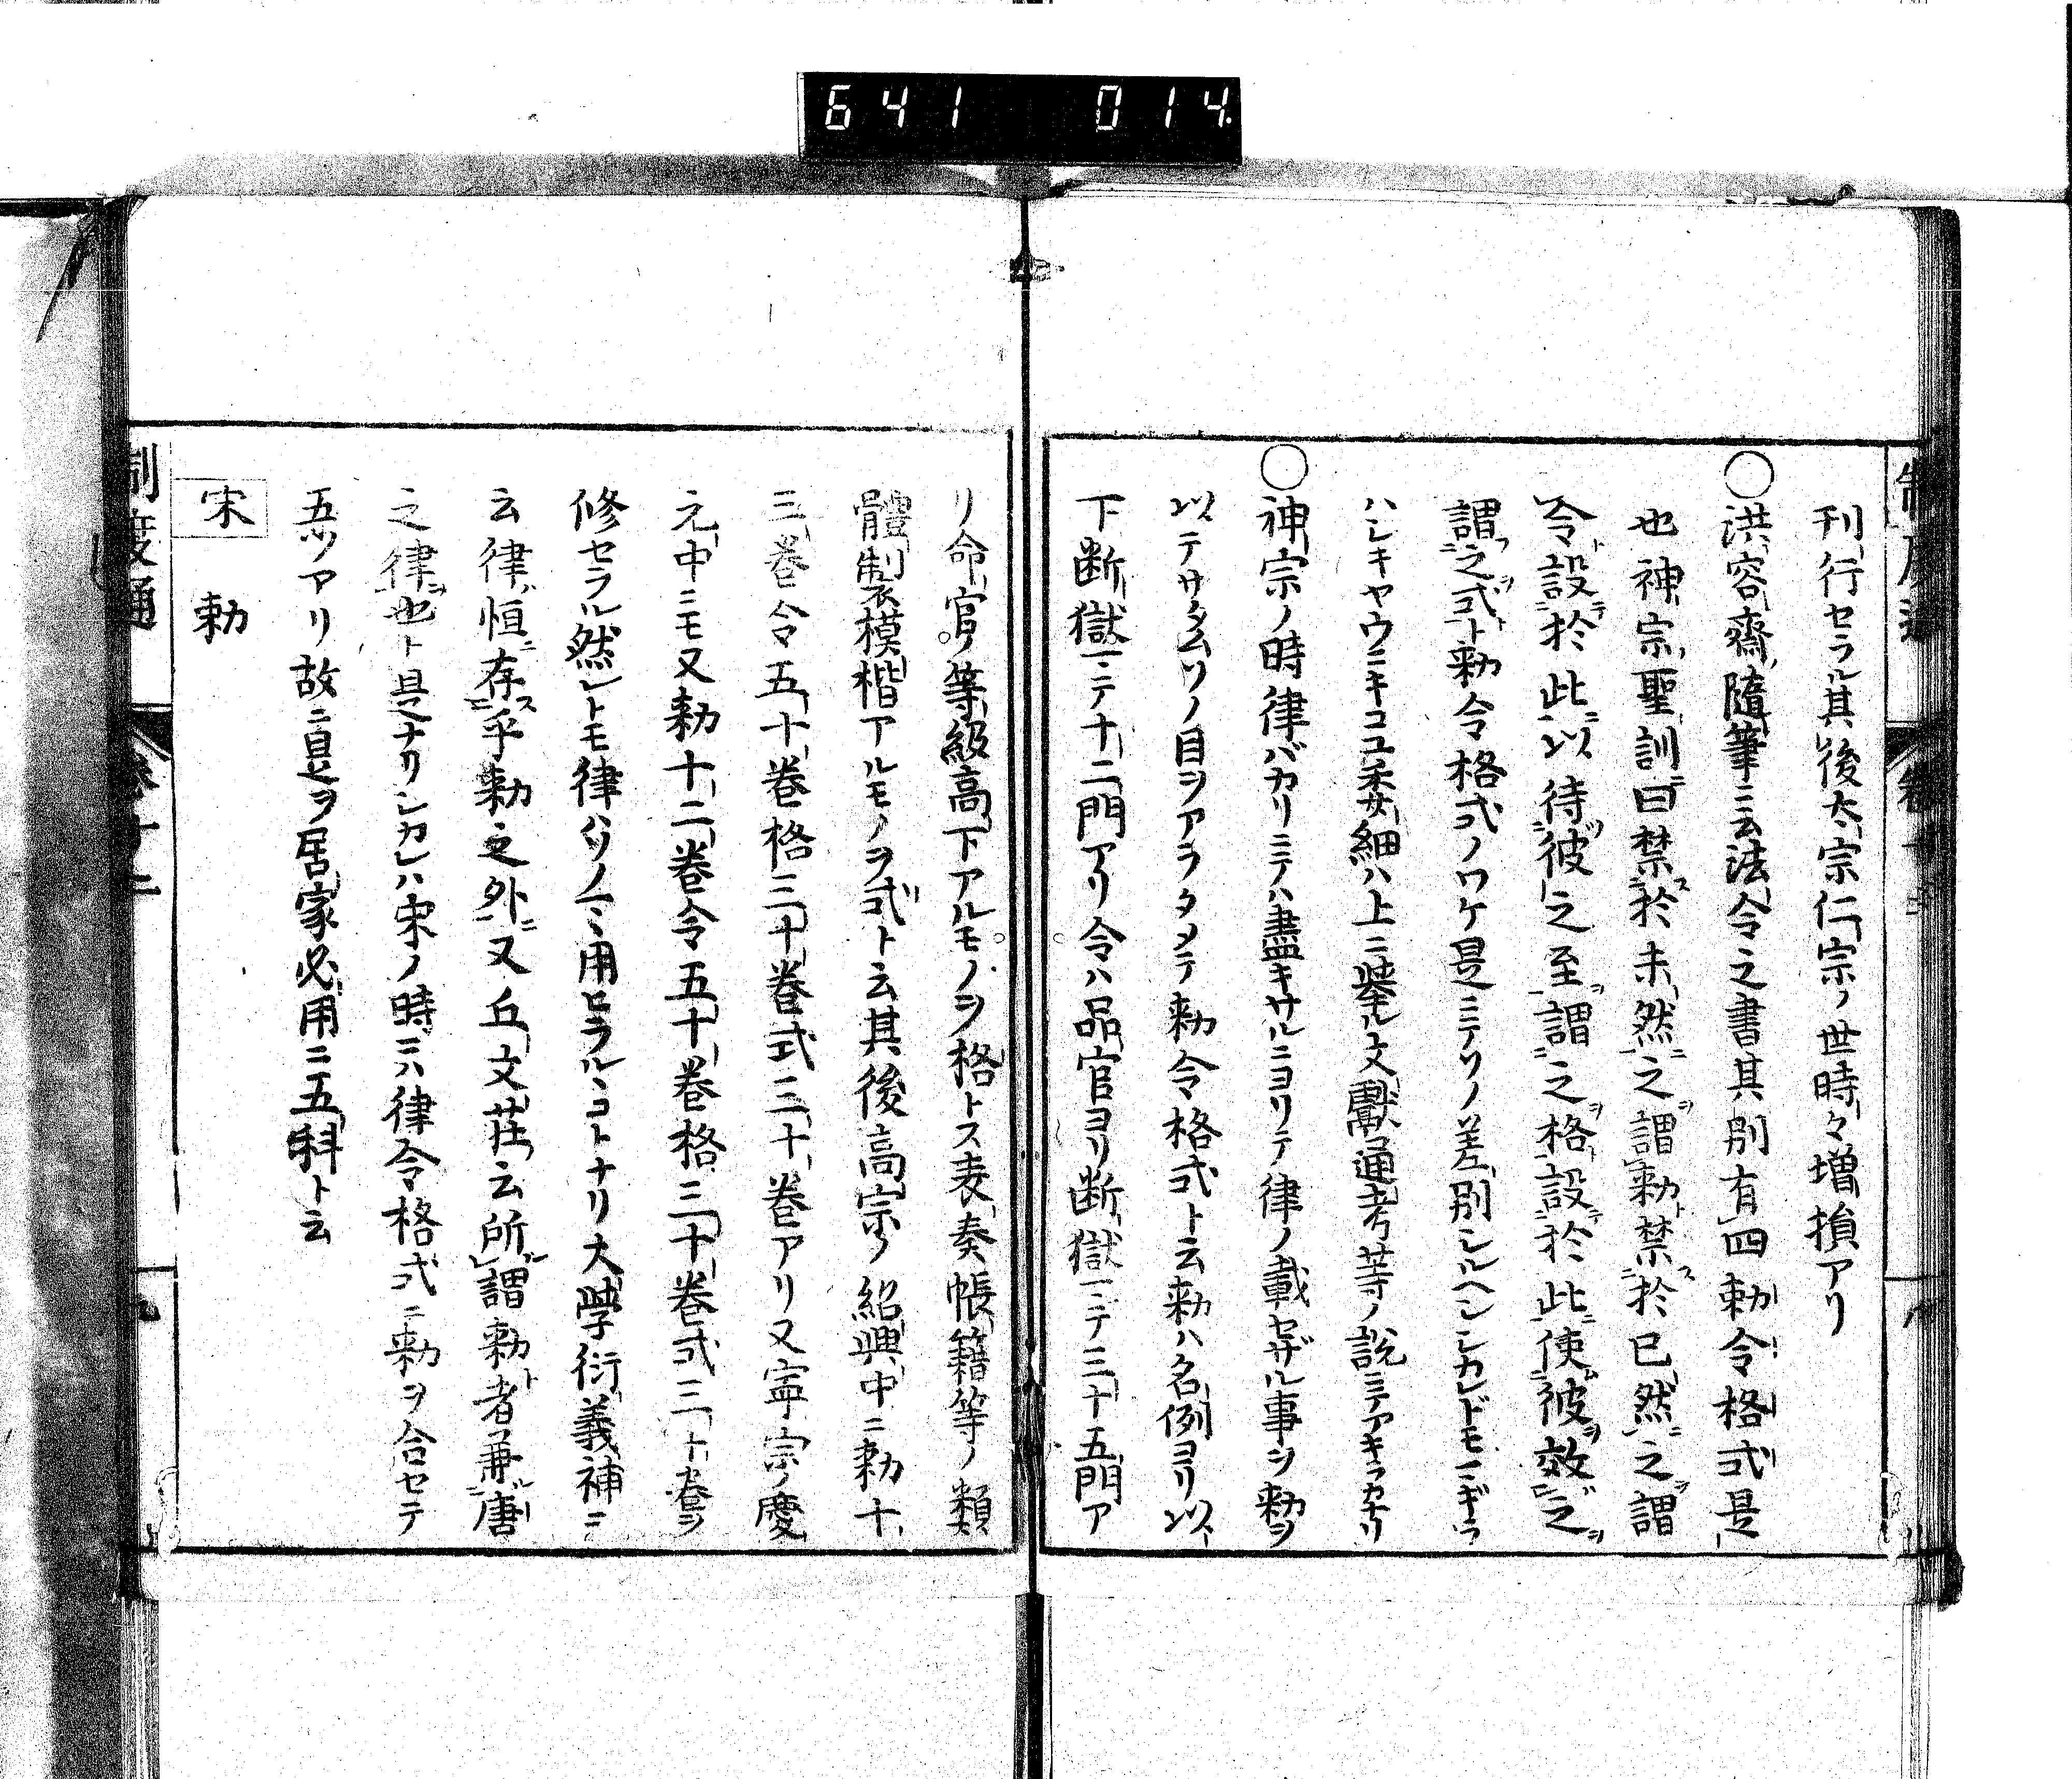 641 014.
制度通 卷十二 八
刊行セラル其後太宗仁宗ノ世時々増損アリ
〇洪容齋隨筆ニ云法令之書其別有四勅令格式是
也神宗聖訓曰禁於未然之謂勅禁於已然之謂
令設於此以待彼之至謂之格設於此使彼效之
謂之式ト勅令格式ノワケ是ニテソノ差別シルヘシシカレドモ一ギニ
ハシキヤウニキコユ委細ハ上ニ挙ル文獻通考等ノ説ニテアキラカナリ
〇神宗ノ時律バカリニテハ盡キサルニヨリテ律ノ載セザル事ヲ勅ヲ
以テサタムソノ目ヲアラタメテ勅令格式ト云勅ハ名例ヨリ以
下断獄ニテ十二門アリ令ハ品官ヨリ断獄ニテ三十五門ア
リ命官ノ等級高下アルモノヲ格トス表奏帳籍等ノ類
體制模楷アルモノヲ式ト云其後高宗ノ紹興中ニ勅十
三巻令五十巻格三十巻式三十巻アリ又寧宗ノ慶
元中ニモ又勅十二巻令五十巻格三十巻式三十巻ヲ
修セラル然レトモ律ハソノマヽ用ヒラルヽコトナリ大學衍義補ニ
云律恒存乎勅之外又丘文荘云所謂勅者兼唐
之律也ト是ナリシカレハ宋ノ時ニハ律令格式ニ勅ヲ合セテ
五ツアリ故ニ是ヲ居家必用ニ五科ト云
宋 勅
制度通 卷十二 九